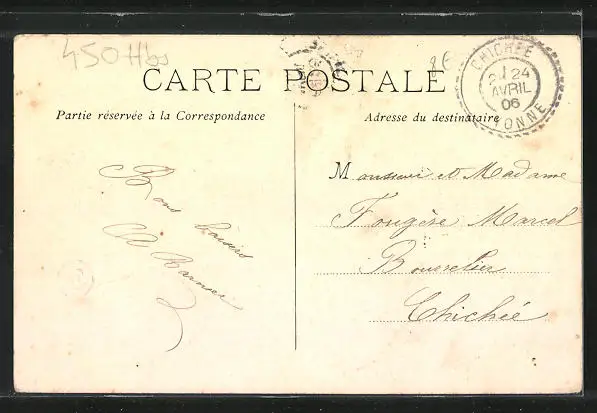 450 Hbs
CHICHÉE
24
AVRIL
06
YONNE
CARTE POSTALE
Partie réservée à la Correspondance
Adresse du destinataire
Bons baisers
Monsieur et Madame
Fougère Marcel
Bourrelier
Chichée